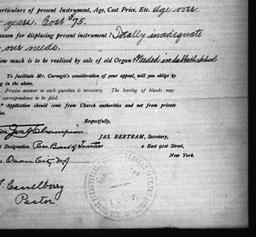 Particulars of present Instrument, Age, Cost Price, Etc. Age over
years. Cost $75.
reason for displacing present instrument? Totally inadequate
our needs.
How much is to be realised by sale of old Organ? Needed in Sabbath School
To facilitate Mr. Carnegie's consideration of your appeal, will you oblige by
in the above.
Precise answer to each question is necessary. The leaving of blanks may
correspondence to be filed.
Application should come from Church authorities and not from private
Respectfully,
Champion
JAS. BERTRAM, Secretary,
Designation Pres. Board of Trustees
2 East 91st Street,
Ocean City NJ
New York.
Pastor.